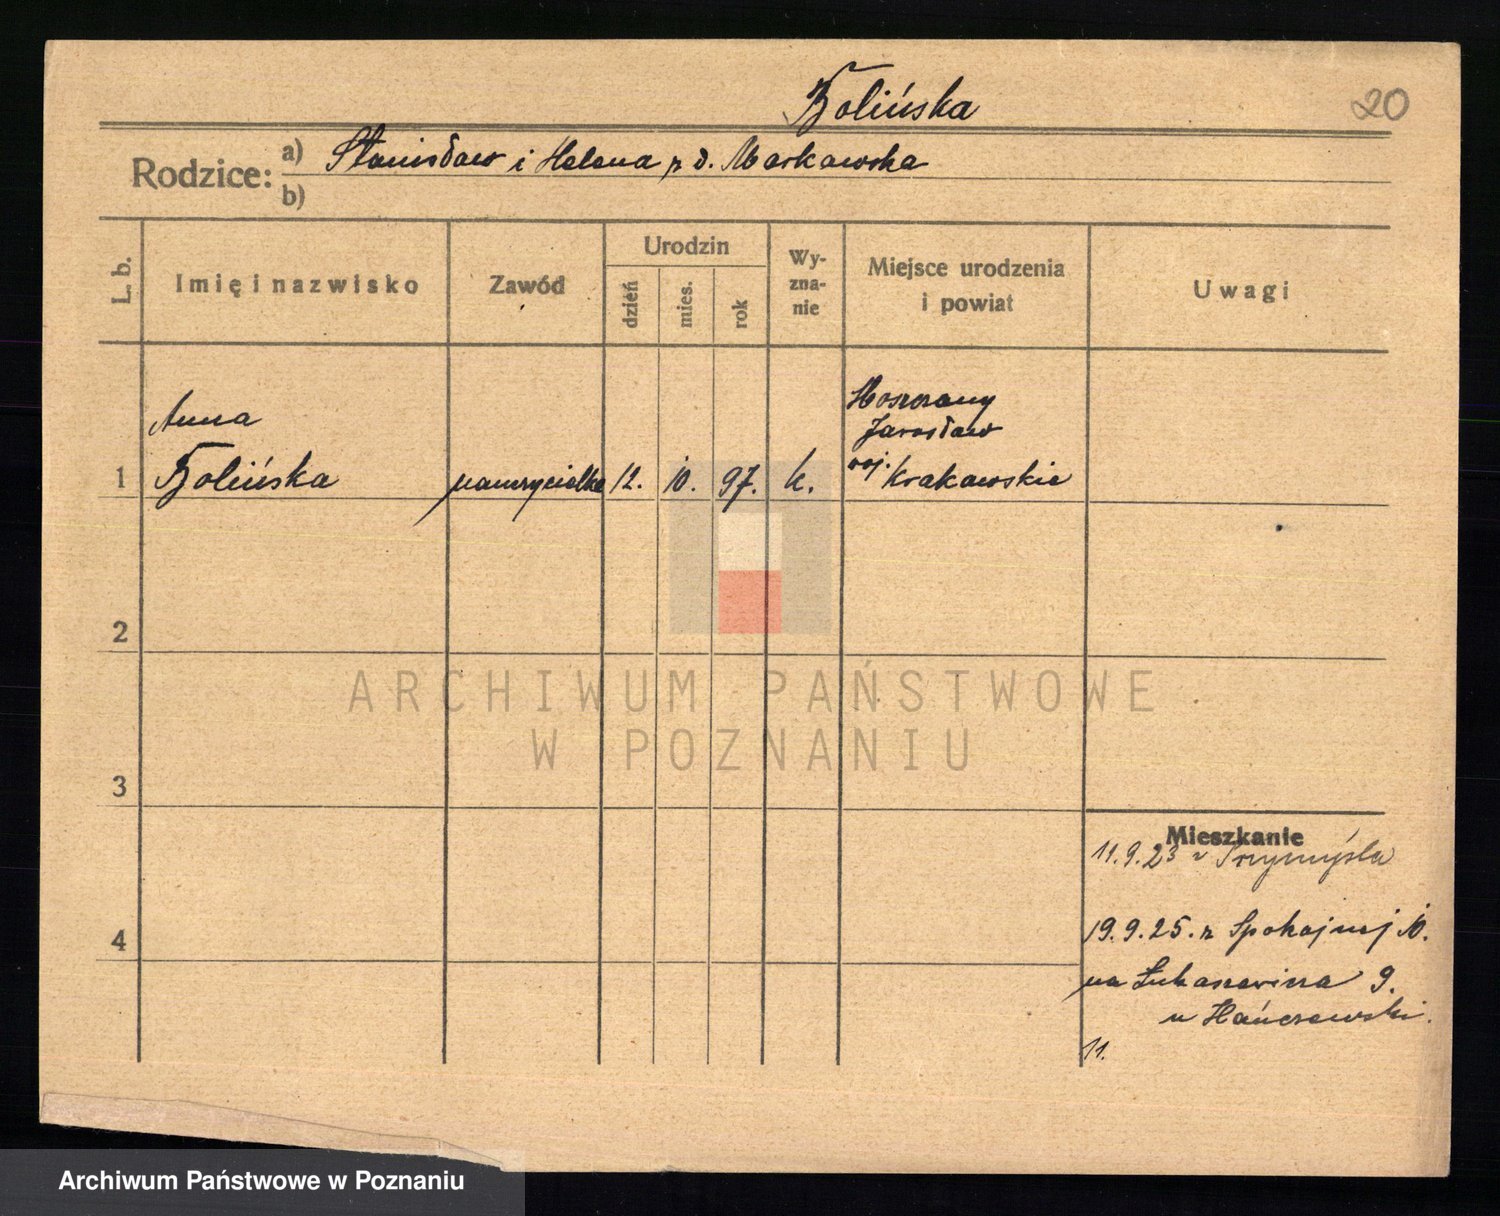 Bolińska
20
Rodzice: a) Stanisław i Helena z d. Markowska
b)
L. b.
Imię i nazwisko
Zawód
Urodzin
dzień
mies.
rok
Wy-
zna-
nie
Miejsce urodzenia
i powiat
Uwagi
Anna
Moszczany
Jarosław
1 Bolińska nauczycielka 12. 10. 97. k. woj. Krakowskie
2
ARCHIWUM PAŃSTWOWE
W POZNANIU
3
Mieszkanie
11.9.23 z Przemyśla
4
19.9.25. z Spokojnej 10.
na Łukaszewicza 9.
u Hańczewski.
11.
Archiwum Państwowe w Poznaniu